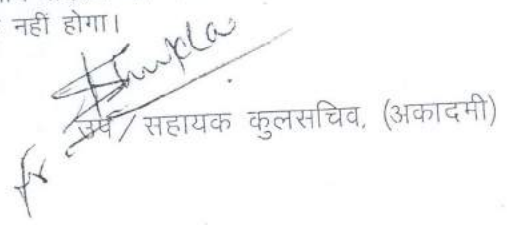 नहीं होगा।
Shukla
उप / सहायक कुलसचिव, (अकादमी)
for